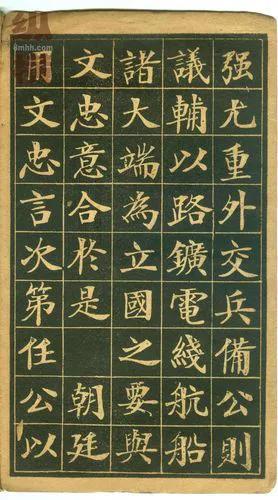 强尤重外交兵備公則
議輔以路鑛電綫航船
諸大端為立國之要與
文忠意合於是朝廷
用文忠言次第任公以
8mhh.com